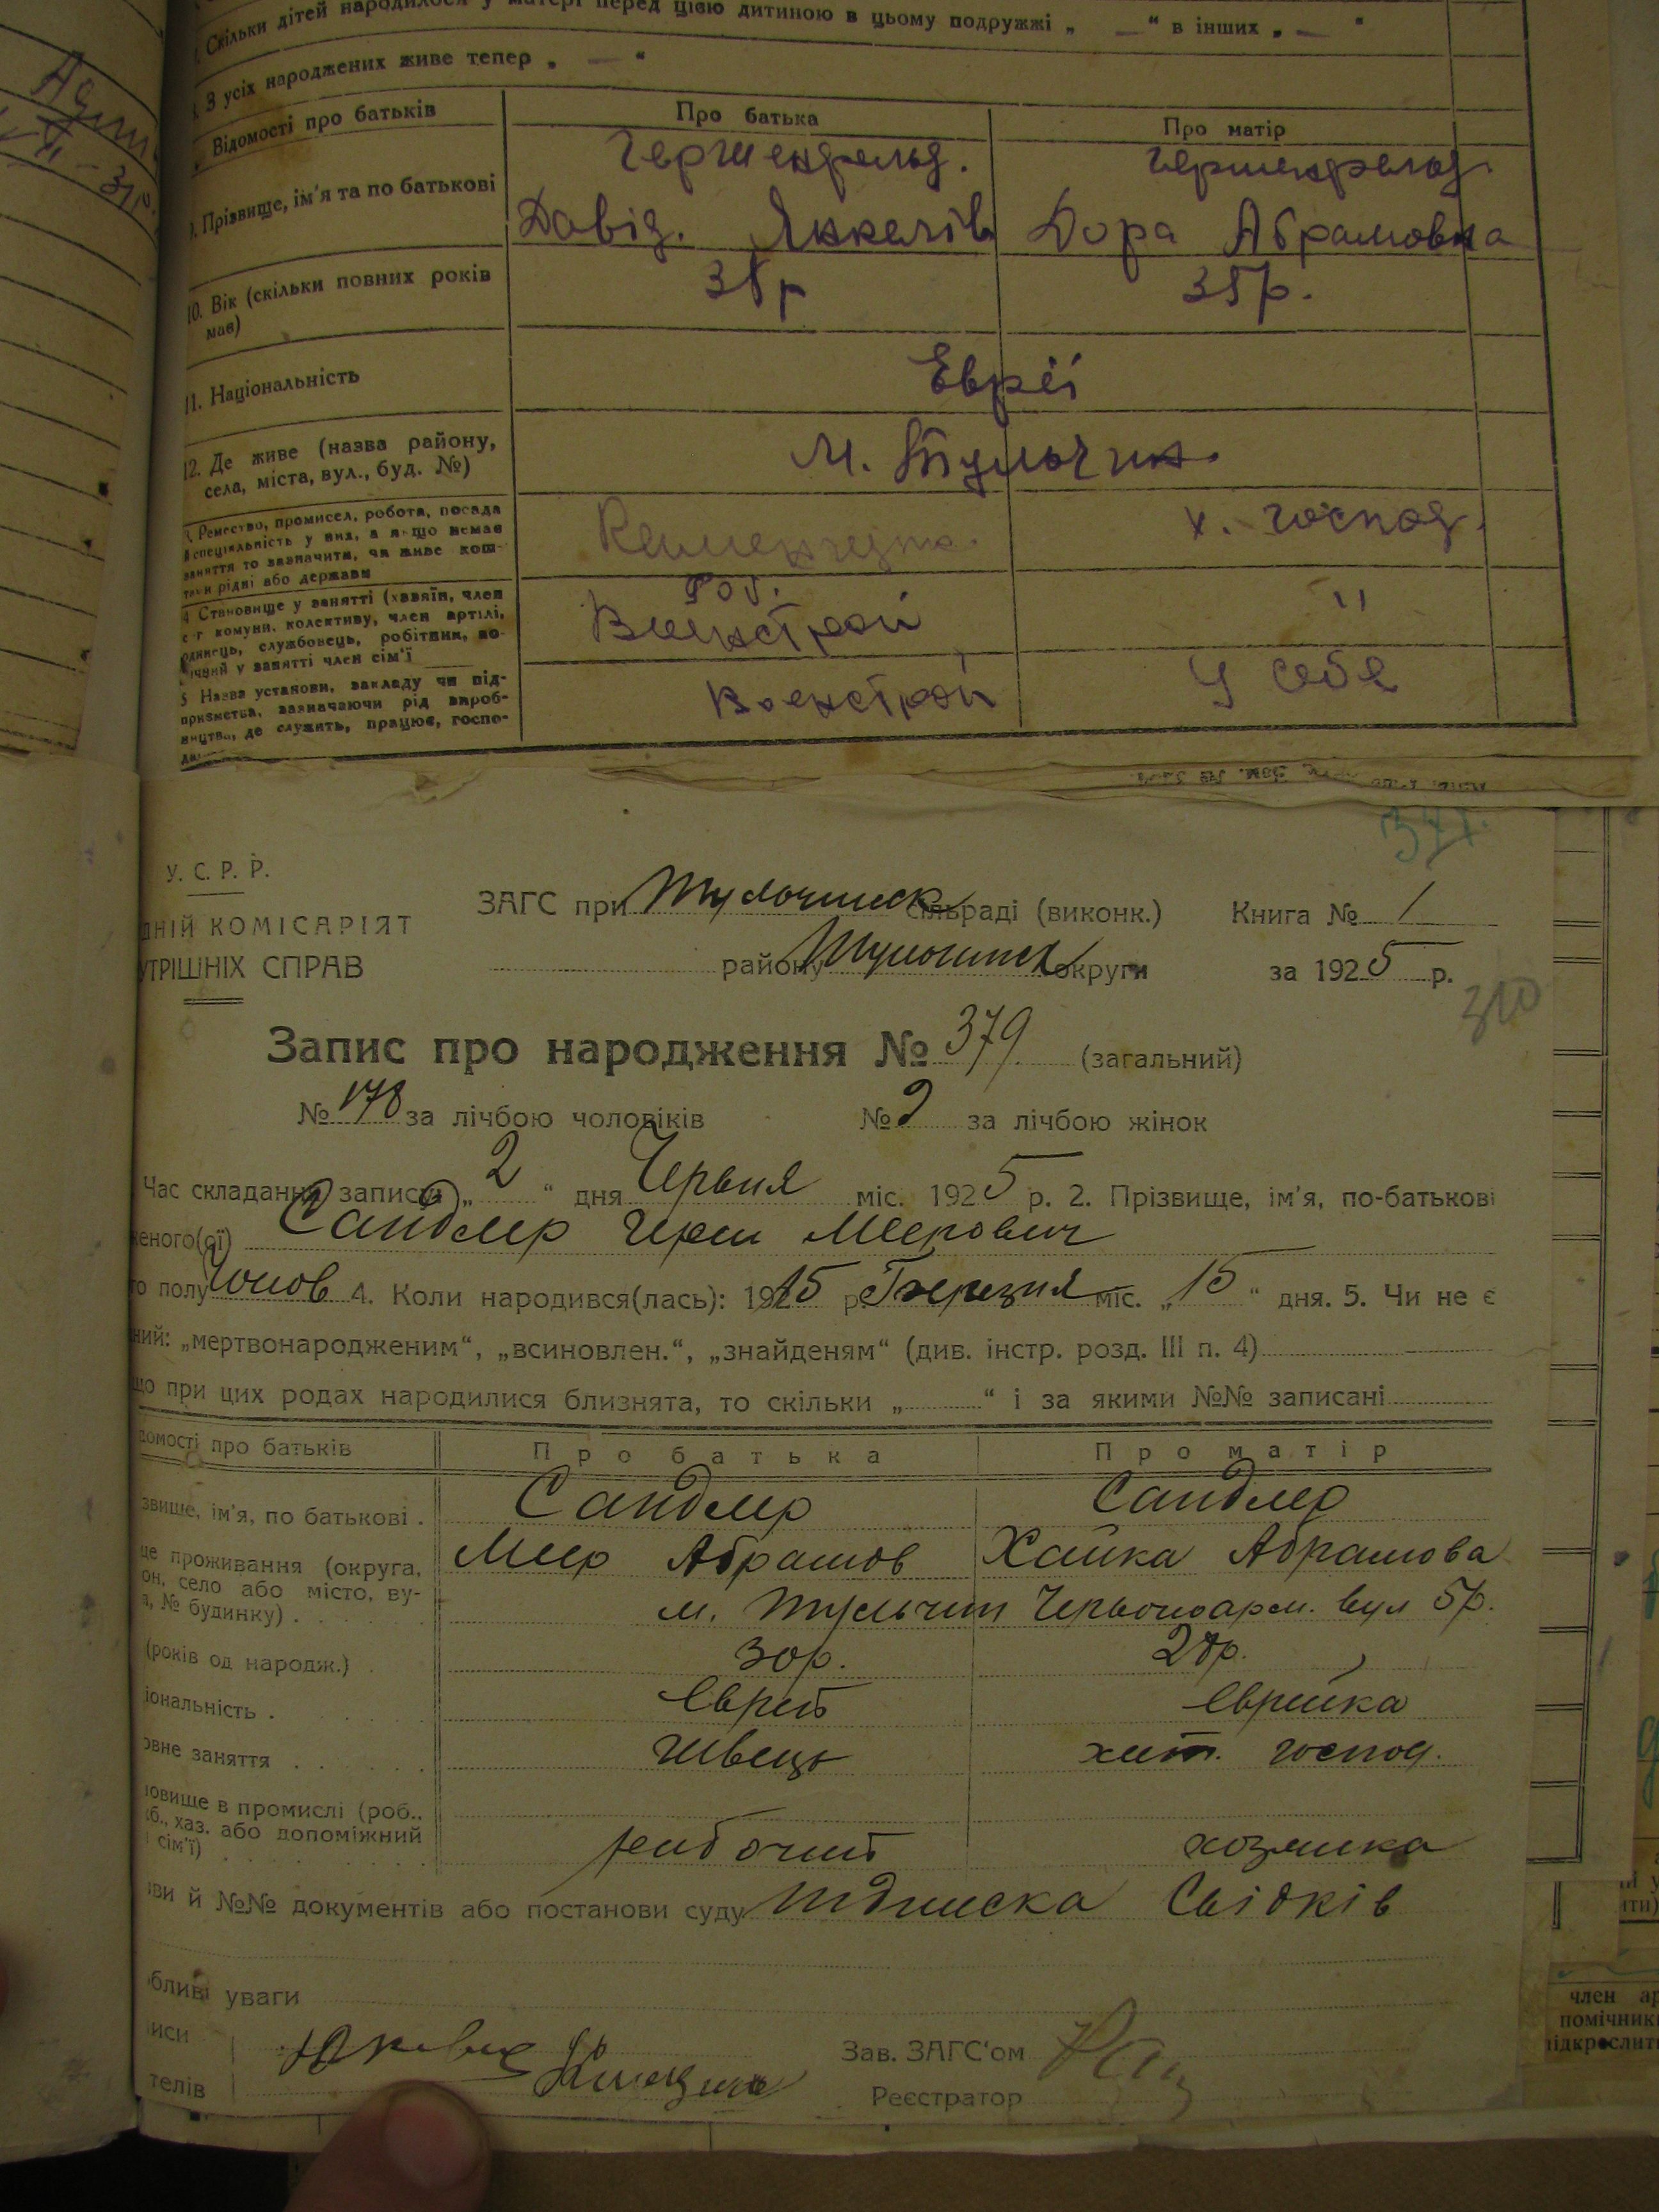 Скільки дітей народилося у матері перед цією дитиною в цьому подружжі „ — “ в інших „ — “
З усіх народжених живе тепер „ — “
Відомості про батьків Про батька Про матір
9. Прізвище, ім'я та по батькові Гершенфельд. Гершенфельд.
Давід. Янкелів Дора Абрамовна
10. Вік (скільки повних років мав) 35р.
11. Національність Евреї
12. Де живе (назва району, села, міста, вул., буд. №) М. Тульчин.
Ремество, промисел, робота, посада
й спеціяльність у них, а якщо немає
заняття то зазначити, чи живе кош-
тами рідні або держави х. господ.
4 Становище у занятті (хазяїн, член
с-г комуни, колективу, член артілі,
одинець, службовець, робітник, по-
мічний у занятті член сім'ї роб. Военстрой "
5 Назва установи, закладу чи під-
приємства, зазначаючи рід вироб-
ництва, де служить, працює, госпо- Военстрой У себе
У. С. Р. Р.
ДНІЙ КОМІСАРІЯТ
УТРІШНІХ СПРАВ
ЗАГС при Тульчинск сільраді (виконк.) Книга № 1
району Тульчинск округи за 1925 р.
310
Запис про народження № 379 (загальний)
№ 178 за лічбою чоловіків № за лічбою жінок
Час складання запису „ 2 “ дня Червня міс. 1925 р. 2. Прізвище, ім'я, по-батькові
женого(ої) Сандлер Герш Меерович
го полу чолов 4. Коли народився(лась): 1915 р. Березня міс. „ 15 “ дня. 5. Чи не є
ний: „мертвонародженим“, „всиновлен.“, „знайденям“ (див. інстр. розд. III п. 4)
що при цих родах народилися близнята, то скільки „ “ і за якими №№ записані
домості про батьків Про батька Про матір
звище, ім'я, по батькові . Сандлер Сандлер
Меер Абрамов Хайка Абрамова
це проживання (округа,
он, село або місто, ву-
а, № будинку) . м. Тульчин Червоноарм. вул 5р.
(років од народж.) . 30р. 28р.
іональність . Еврей Еврейка
овне заняття . Швець хат. господ.
новище в промислі (роб.,
сб., хаз. або допоміжний
сім'ї) рабочий хозяика
ови й №№ документів або постанови суду підписка Свідків
обливі уваги
иси
телів
Зав. ЗАГС'ом
Реєстратор
член ар
помічник
підкреслити